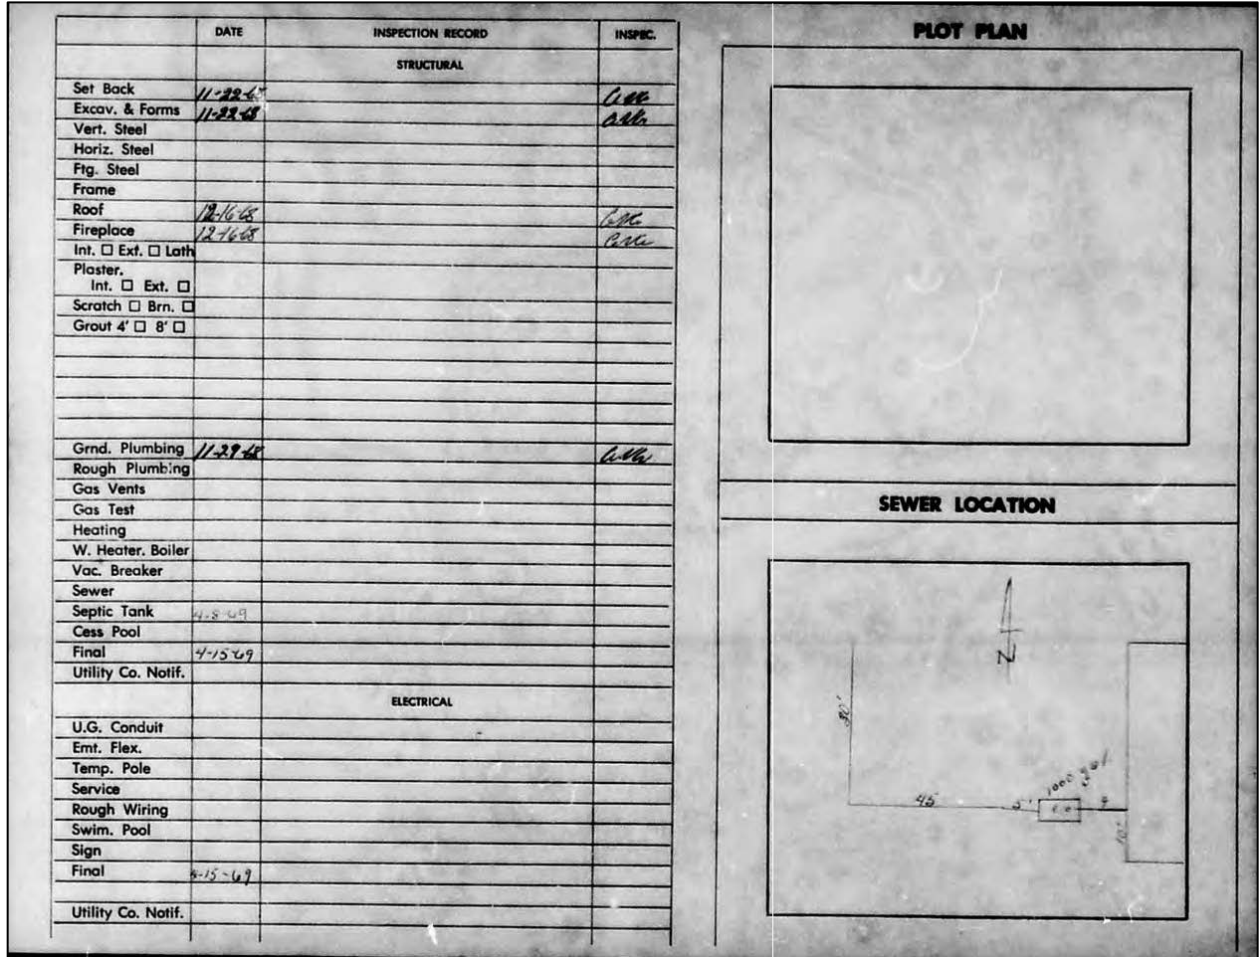 DATE INSPECTION RECORD INSPEC.
STRUCTURAL
Set Back 11-22-68
Excav. & Forms 11-22-68
Vert. Steel
Horiz. Steel
Ftg. Steel
Frame
Roof 12-16-68
Fireplace 12-16-68
Int. ☐ Ext. ☐ Lath
Plaster.
Int. ☐ Ext. ☐
Scratch ☐ Brn. ☐
Grout 4' ☐ 8' ☐
Grnd. Plumbing 11-29-68
Rough Plumbing
Gas Vents
Gas Test
Heating
W. Heater. Boiler
Vac. Breaker
Sewer
Septic Tank 4-8-69
Cess Pool
Final 4-15-69
Utility Co. Notif.
ELECTRICAL
U.G. Conduit
Emt. Flex.
Temp. Pole
Service
Rough Wiring
Swim. Pool
Sign
Final 4-15-69
Utility Co. Notif.
PLOT PLAN
SEWER LOCATION
N
1000 gal
45 5' 9
10'